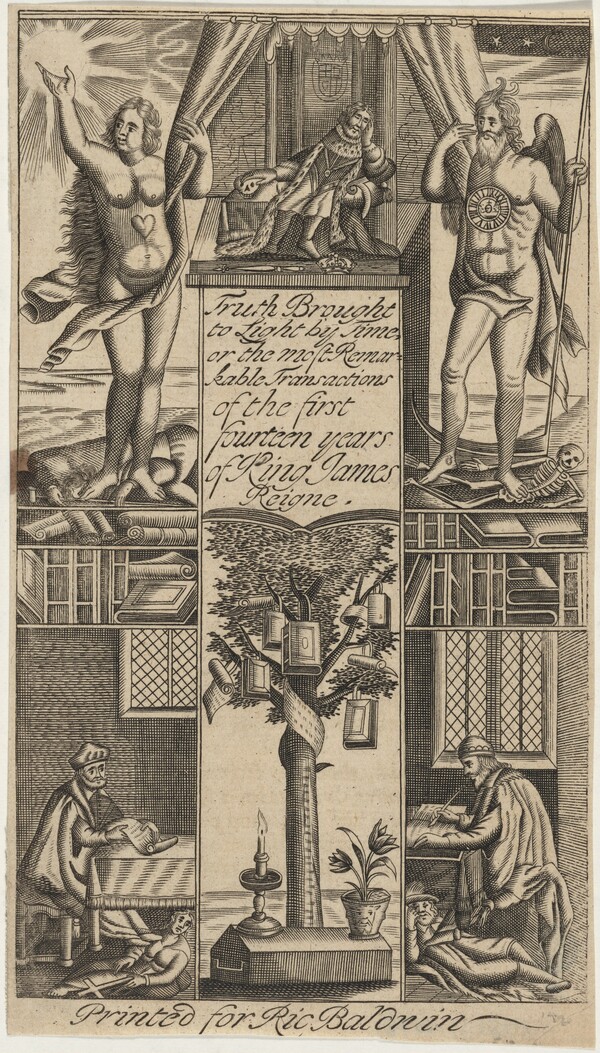 Truth Brought
to Light by Time,
or the most Remar-
kable Transactions
of the first
fourteen years
of King James
Reigne.
Printed for Ric. Baldwin